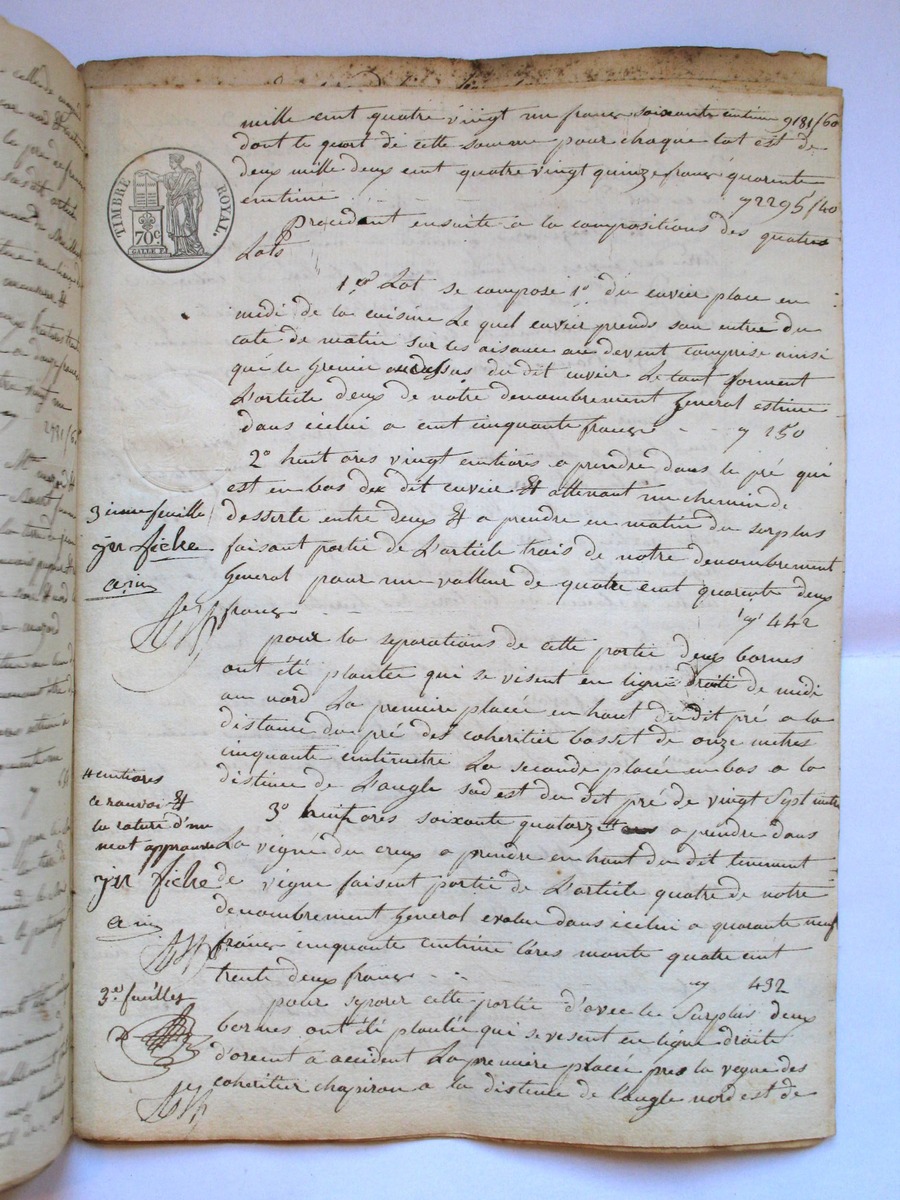 mille cent quatre vingt un franc soixante centime 9181/60
dont le quart de cette somme pour chaque lot est de
deux mille deux cent quatre vingt quinze franc quarente
centime 2295/40
TIMBRE ROYAL.
70c.
Procedant ensuite a la compositions des quatre
Lots
1er Lot se compose 1º du cuvier place en
midi de la cuisine Le quel cuvier prends son entre du
cote de matin sur les aisance au devent comprise ainsi
que le Grenier au dessus du dit cuvier Le tout forment
L'article deux de notre denombrement General estime
dans icelui a cent cinquante franc 150
2º huit ares vingt centiares a prendre dans le pré qui
est en bas du dit cuvier et attenant un chemin de
desserte entre deux et a prendre en matin du surplus
faisant partie de L'article trois de notre denombrement
General pour une valleur de quatre cent quarente deux
franc 442
3ieme feuille
pour la separations de cette portie deux bornes
ont été plantee qui se visent en ligne droite de midi
au nord La premiere placée en haut du dit pré a la
distance du pré des coheritier bosset de onze metres
cinquante centimetre La seconde placée en bas a la
distence de L'angle sud est du dit pré de vingt sept metre
3º huit ares soixante quatorze a prendre dans
La vigne du creux a prendre en haut du dit tenement
de vigne faisent portie de L'article quatre de notre
denombrement General evalue dans icelui a quarante neuf
franc cinquante centime L'ares monte quatre cent
trente deux franc 432
centiares
ce renvoi et
la rature d'un
mot approuvee
3e feuilles
pour separer cette portie d'avec le Surplus deux
bornes ont été plantée qui se vesent en ligne droite
d'orient a accident La premiere placée pres la vegne des
coheritier chapiron a la distence de l'angle nord est de